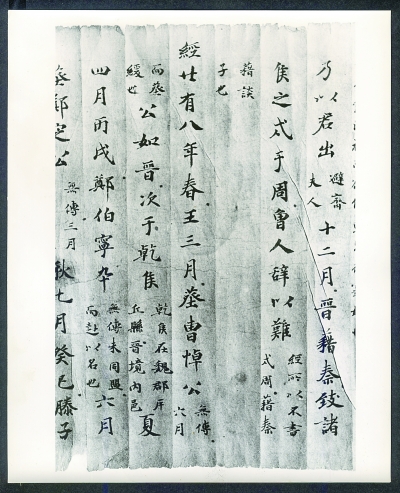 乃以君出避齊夫人十二月晋籍秦致諸
侯之戍于周魯人辭以難經所以不書戍周籍秦
籍談子也
經廿有八年春王三月葬曹悼公無傳六月
而葬緩也公如晋次于乾侯乾侯在魏郡斥丘縣晋境内邑夏
四月丙戌鄭伯寧卒無傳未同盟而赴以名也六月
葬鄭定公無傳三月秋七月癸巳滕子